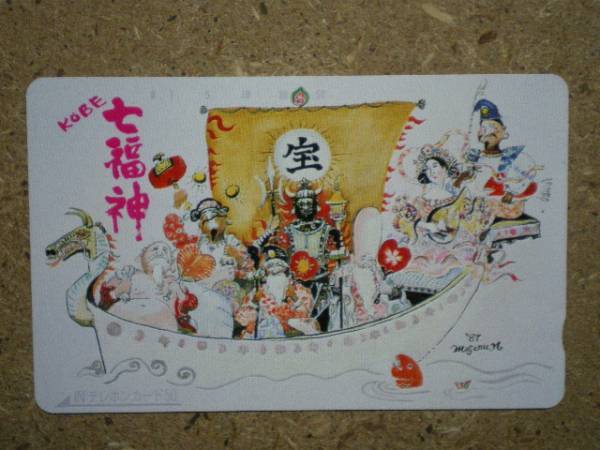 KOBE
七福神
宝
'87
テレホンカード50